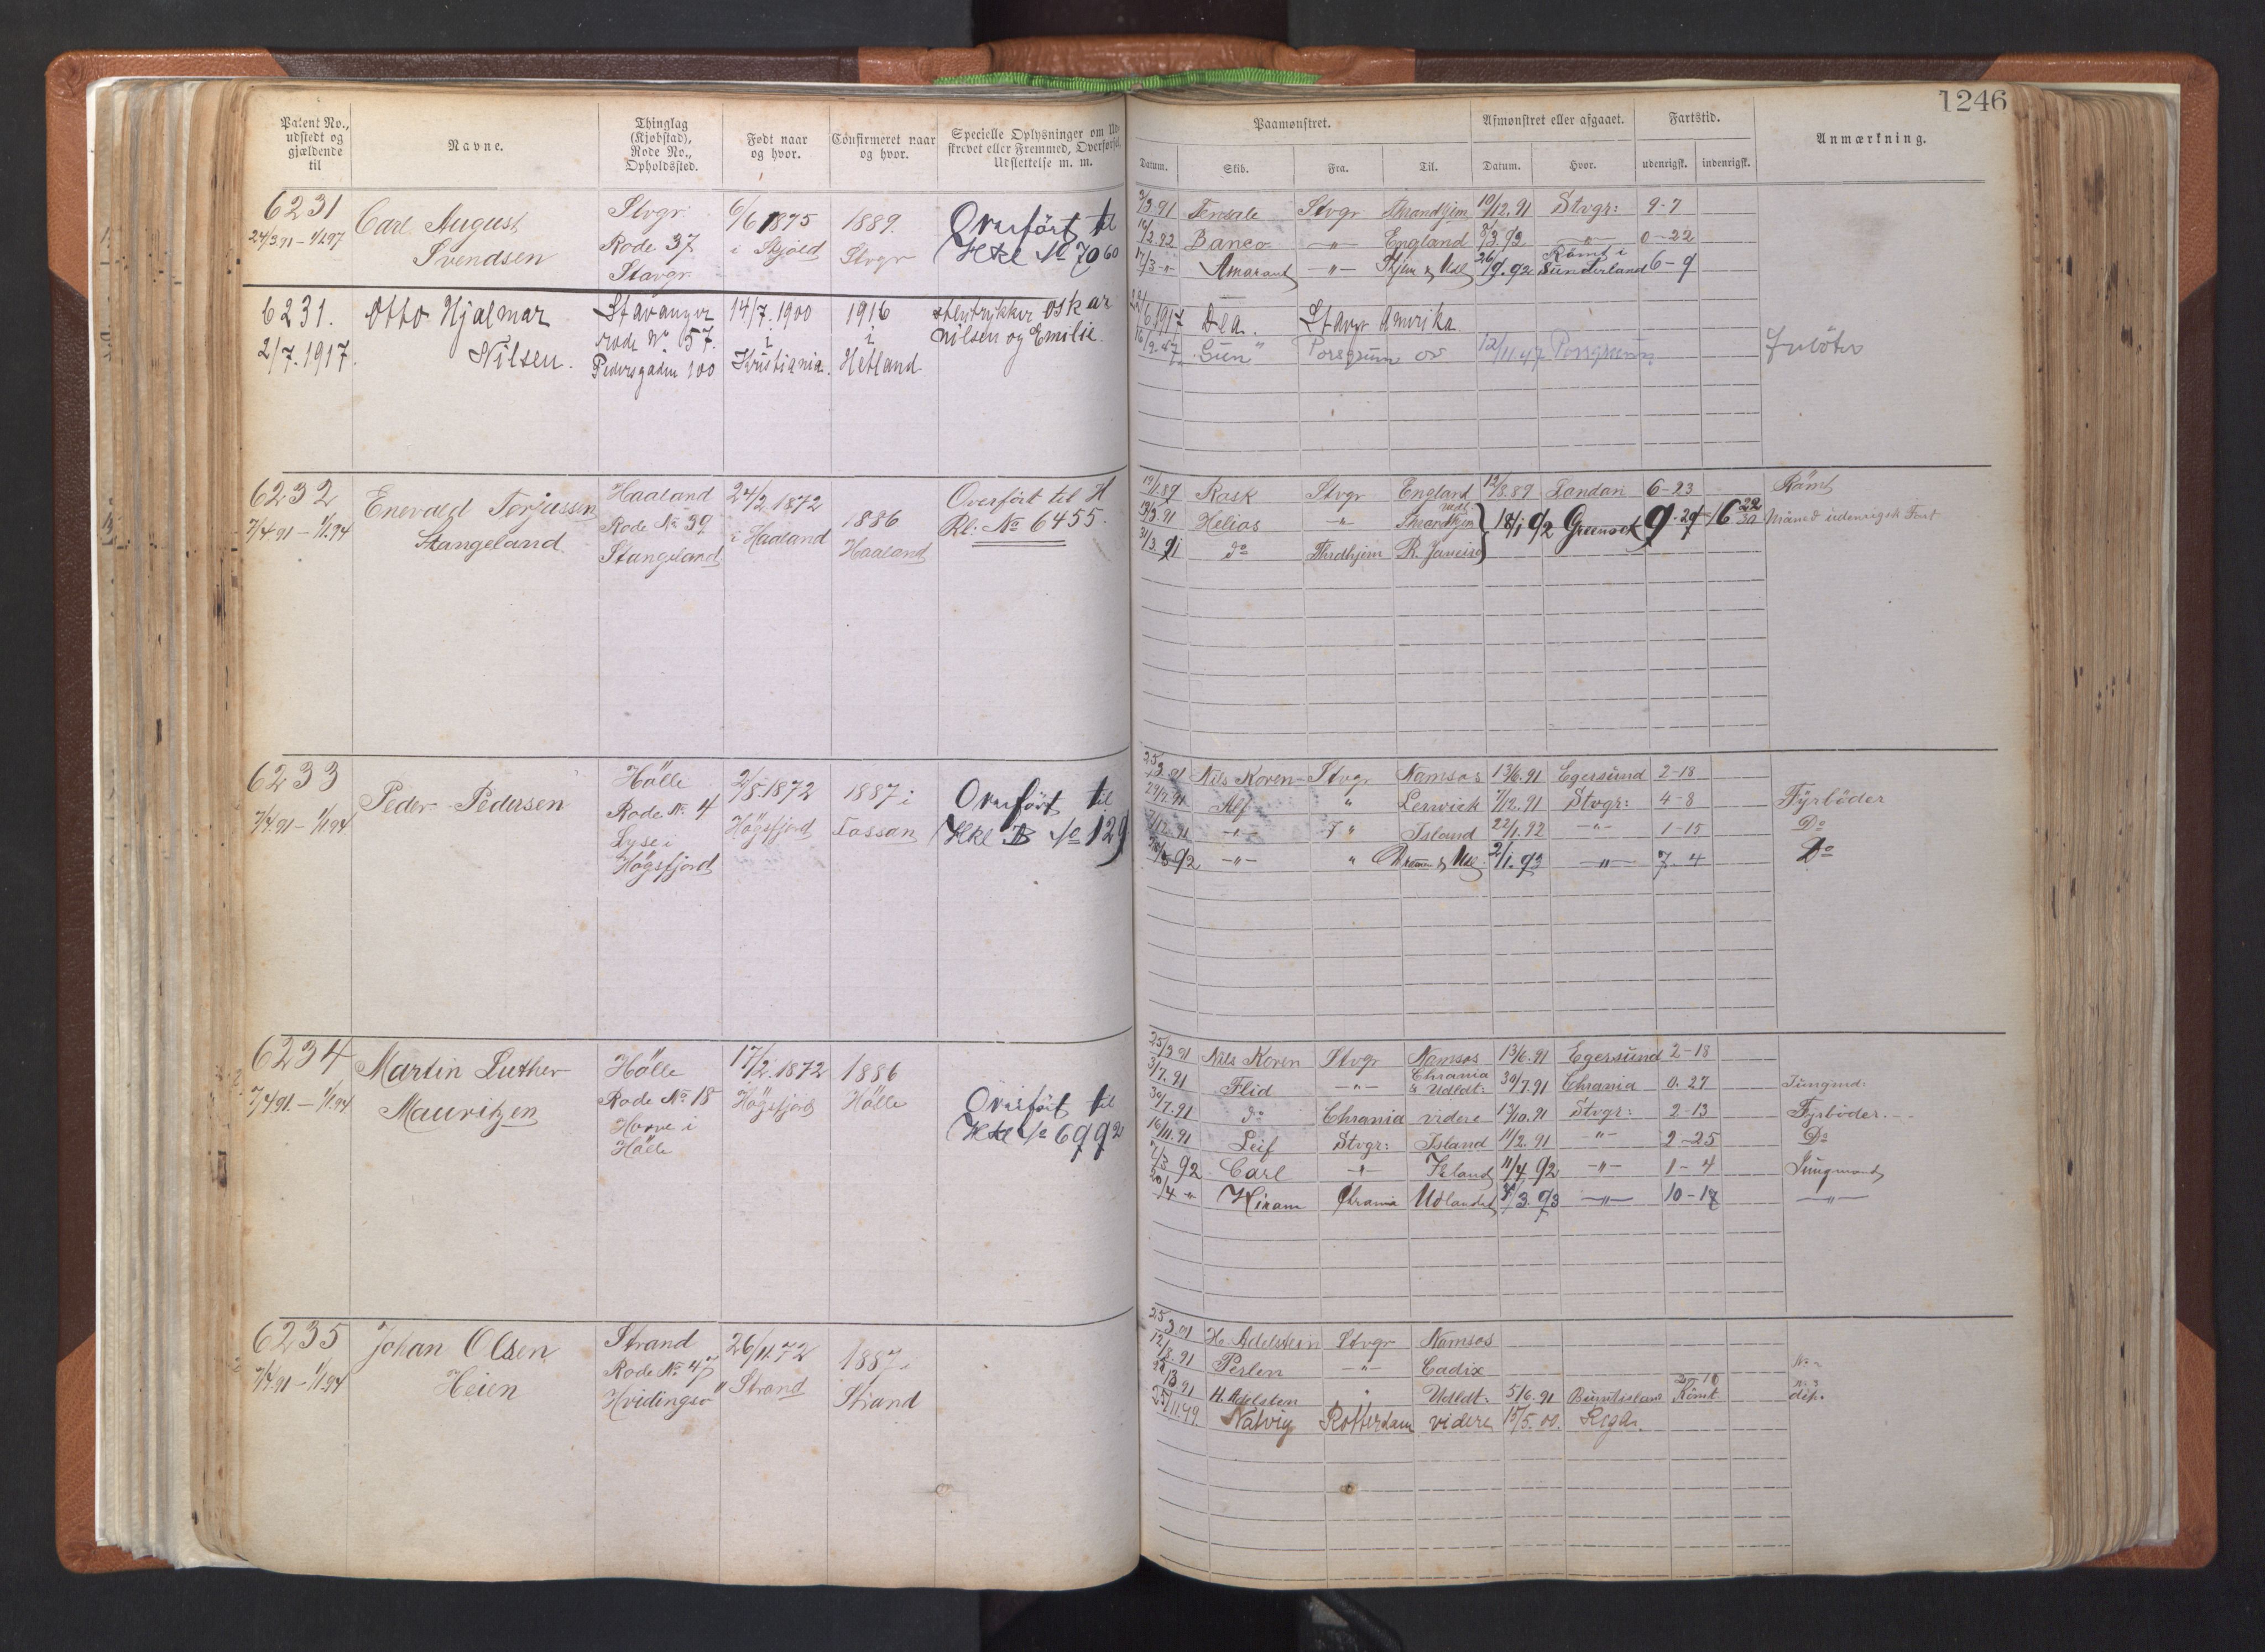 1246
Patent No., udstedt og gjældende til
Navne.
Thinglag (Kjøbstad), Rode No., Opholdssted.
Født naar og hvor.
Confirmeret naar og hvor.
Specielle Oplysninger om Ud-
skrevet eller Fremmed, Overførsel,
Udslettelse m. m.
Paamønstret.
Afmønstret eller afgaaet.
Fartstid.
Anmærkning.
Datum. Skib. Fra. Til. Datum. Hvor. udenrigsk. indenrigsk.
6231
24/3 91 – 1/1 97
Carl August
Svendsen
Stvgr
Rode 37
Stavgr
6/6 1875
i Skjold
1889
Stvgr
Overført til
Hkl No 7060
2/3.91 Stvgr Throndhjem 10/12.91 Stvgr: 9-7
16/2.92 Banco –"– England 8/3.92 –"– 0-22
17/3 –"– Amarant –"– Thjem & Udl 26/9.92 Römt i Sunderland 6-9
6231.
2/7.1917.
Otto Hjalmar
Nilsen.
Stavanger
rode No 57.
Pedersgaden 100
14/7.1900
i
Kristiania.
1916
i
Hetland
Oskar
Nilsen og Emilie.
6/1917 Dea. Stavgr Amerika.
16/9.47 "Gun" Porsgrunn os 12/11 47 Porsgrunn
6232
7/4 91 – 1/1 94
Enevald Torjussen
Stangeland
Haaland
Rode No 39
Stangeland
24/2 1872
i Haaland
1886
Haaland
Overfört til H
Rl: No 6455.
Rask Stvgr England 12/8.89 London 6-23 Römt
19/3.91 Helios " Throndhjem 18/1 92 Greenock 9-29 6 22/30 Maaned udenrigsk Fart
31/3.91 do Thrdhjem R. Janeiro
6233
7/4.91 – 1/1 94
Peder Pedersen
Hölle
Rode No 4
Lyse i
Högsfjord
2/8 1872
Högsfjord
1887 i
Fossan
Overfört til
Hkl B No 129
25/3.91 Nils Koren Stvgr Namsos 13/6.91 Egersund 2-18
29/7.91 Alf " Lerwick 7/12.91 Stvgr: 4-8 Fyrböder
–"– " Island 22/1.92 –"– 1-15 Do
92 –"– " & Udl. 2/1.93 –"– 7-4 Do
6234
7/4 91. – 1/1 94
Martin Luther
Mauritzen
Hölle
Rode No 18
Hölle
17/2.1872
Högsfjord
1886
Hölle
Overfört til
Hkl No 6992
25/3 91 Nils Koren Stvgr Namsos 13/6.91 Egersund 2-18
3/7.91 Flid –"– Chrania & Udldt: 30/7.91 Chrania 0.27 Jungmd:
30/7.91 do Chrania videre 13/10.91 Stvgr: 2-13 Fyrböder.
16/11.91 Leif Stvgr: Island 11/2.91 –"– 2-25 Do
7/3 92 Carl –"– Island 11/4 92 –"– 1-4 Jungmand
20/4 –"– Hiram Chrania Udlandet 3.93 –"– 10-17 –"–
6235
7/4 91 – 1/1 94
Johan Olsen
Heien
Strand
Rode No 47
Hvidingsö
26/11.72
Strand
1887
Strand
25/3.91 H. Adelsteen Stvgr Namsos
12/8.91 Perlen –"– Cadix
91 H. Adelsten " Udldt: 5/6.91 Burntisland Römt
25/11.99 Natvig Rotterdam videre 15/5.00. Riga.